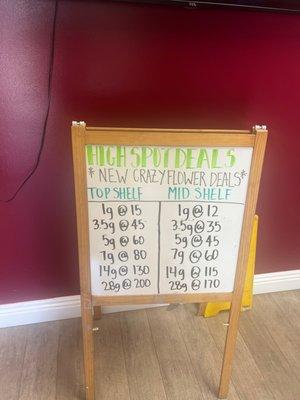 HIGH SPOT DEALS
*NEW CRAZY FLOWER DEALS*
TOP SHELF
1g @ 15
3.5g @ 45
5g @ 60
7g @ 80
14g @ 130
28g @ 200
MID SHELF
1g @ 12
3.5g @ 35
5g @ 45
7g @ 60
14g @ 115
28g @ 170